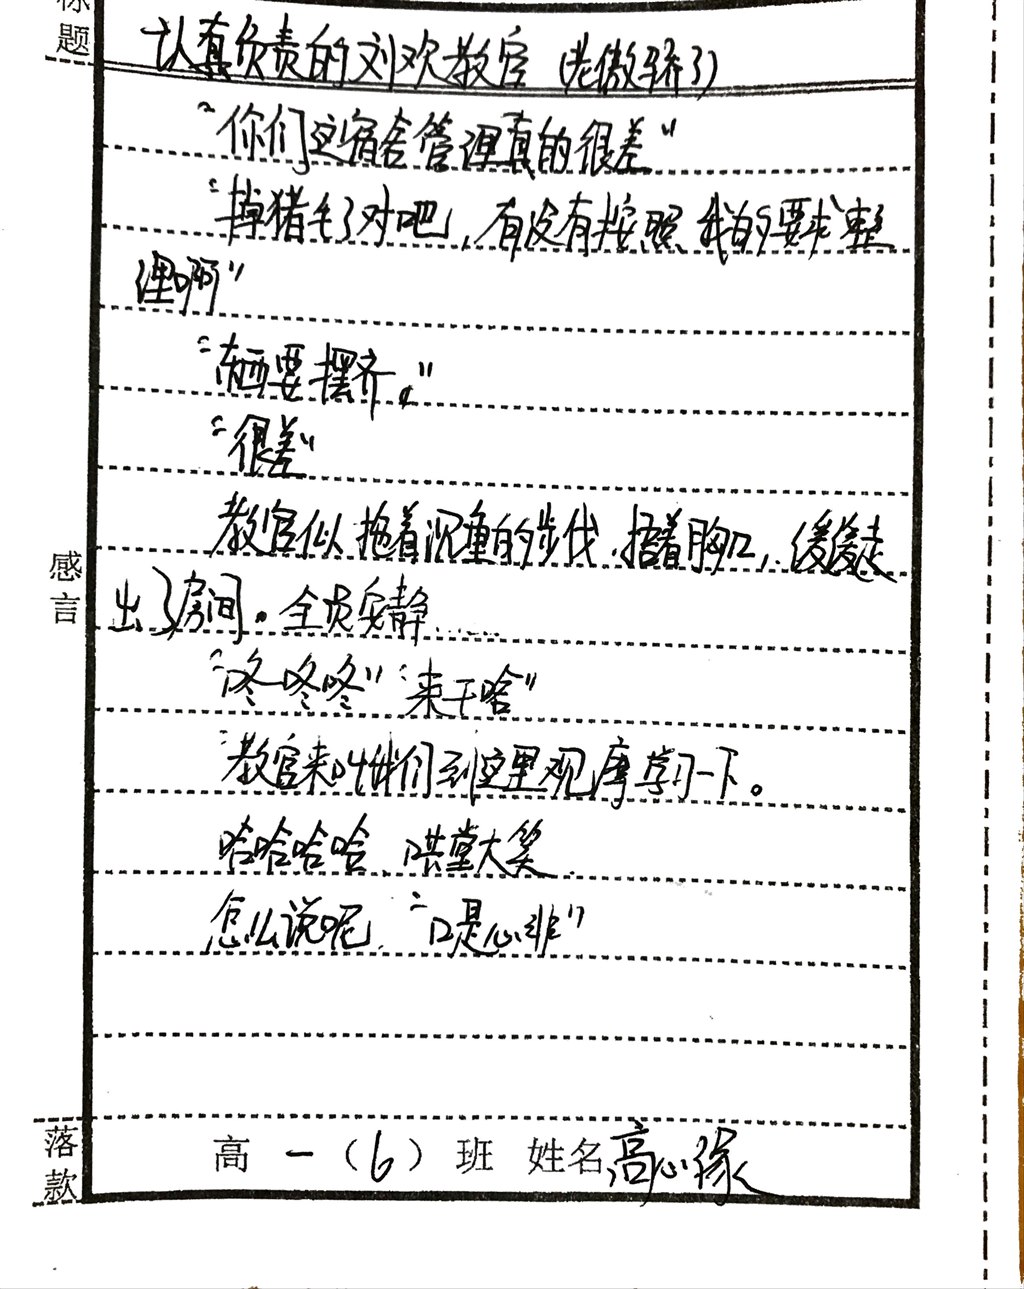 标题
认真负责的刘欢教官(老傲骄了)
“你们这宿舍管理真的很差”
“掉猪毛了对吧,有没有按照我的要求整
理啊”
“东西要摆齐。”
“很差”
教官似拖着沉重的步伐、捂着胸口,缓缓走
出了房间。全员安静……
“咚咚咚”“来干啥”
“教官来叫我们到这里观摩学习一下。
哈哈哈哈、哄堂大笑.
怎么说呢、“口是心非”
感言
落款
高一(6)班 姓名高心缘